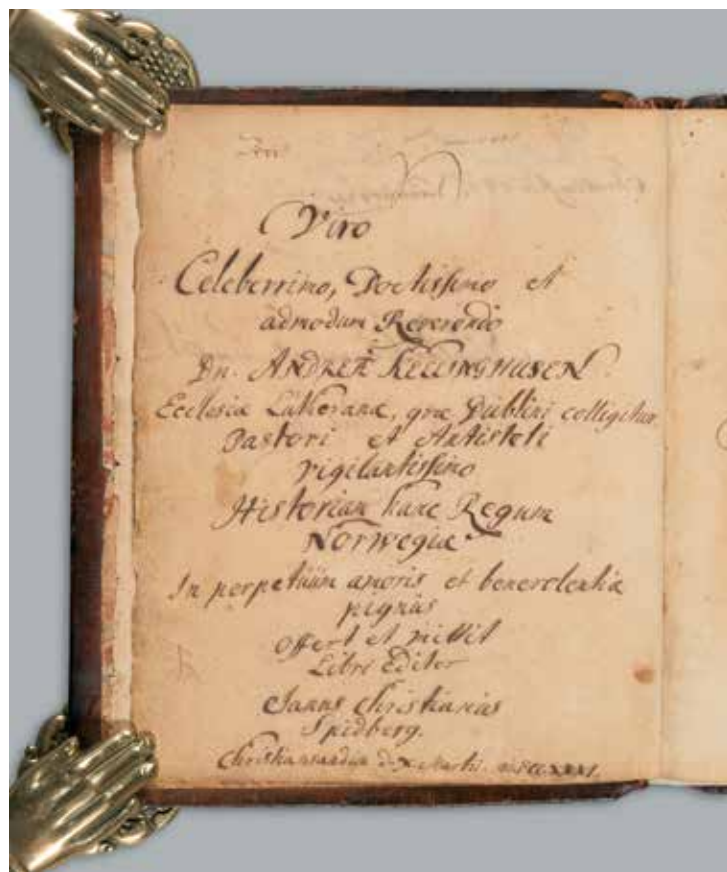 Viro
Celeberrimo, Doctissimo et
admodum Reverendo
Dn. ANDREÆ KELLINGHUSEN
Ecclesiæ Lutheranæ, quæ Dublini colligitur
Pastori et Antistiti
vigilantissimo
Historiam hanc Regum
Norwegiæ
In perpetuüm amoris et benevolentiæ
pignus
offert et mittit
Libri Editor
Janus Christianus
Spidberg.
Christiansandiæ d. X Martii.